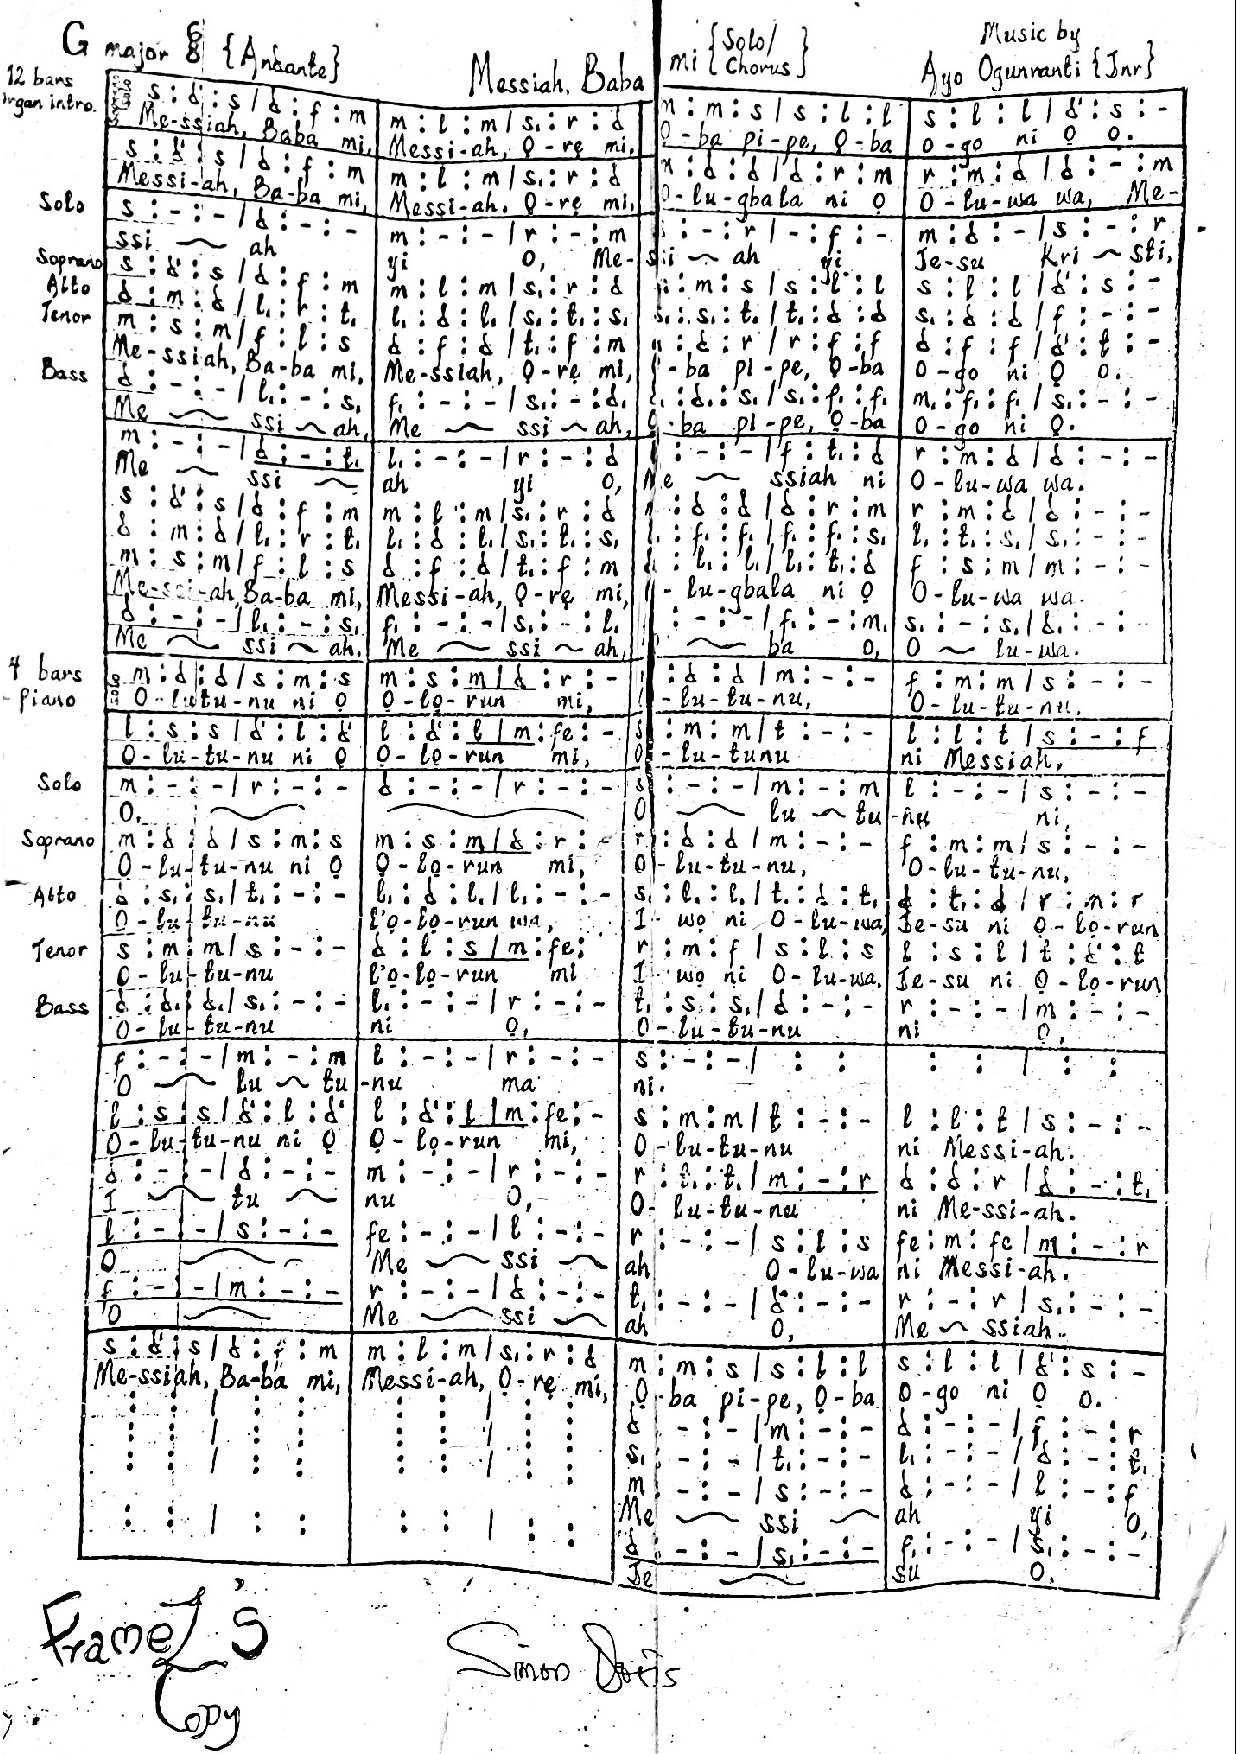 G major 6/8 {Andante} Messiah, Baba mi {Solo/Chorus} Music by Ayo Ogunranti {Jnr}
12 bars organ intro.
s : d' : s / d : f : m | m : l : m / s, : r : d | m : m : s / s : l : l | s : l : l / d' : s : -
Me-ssiah, Baba mi, Messi-ah, Ọ-rẹ mi, Ọ-ba pi-pe, Ọ-ba O-go ni Ọ O.
s : d' : s / d : f : m | m : l : m / s, : r : d | m : d : d / d : r : m | r : m : d / d : - : m
Messi-ah, Ba-ba mi, Messi-ah, Ọ-rẹ mi, O-lu-gbala ni Ọ O-lu-wa wa, Me-
Solo s : - : - / d : - : - | m : - : - / r : - : m | : - : r / - : f : - | m : d : - / s : - : r
ssi ah yi O, Me-ssi ah yi Je-su Kri sti,
Soprano s : d' : s / d : f : m | m : l : m / s, : r : d | : m : s / s : l : l | s : l : l / d' : s : -
Alto d : m : d / l, : r : t, | l, : d : l, / s, : t, : s, | s, : s, : t, / t, : d : d | s, : d : d / f : - : -
Tenor m : s : m / f : l : s | d : f : d / t, : f : m | : d : r / r : f : f | d : f : f / d' : t : -
Me-ssiah, Ba-ba mi, Me-ssiah, Ọ-rẹ mi, Ọ-ba pi-pe, Ọ-ba O-go ni Ọ O.
Bass d : - : - / l, : - : s, | f, : - : - / s, : - : d, | : d, : s, / s, : f, : f, | m, : f, : f, / s, : - : -
Me ssi ah, Me ssi ah, Ọ-ba pi-pe, Ọ-ba O-go ni Ọ.
m : - : - / d : - : t, | l, : - : - / r : - : d | : - : - / f : t, : d | r : m : d / d : - : -
Me ssi ah yi O, Me ssiah ni O-lu-wa wa.
s : d' : s / d : f : m | m : l : m / s, : r : d | : d : d / d : r : m | r : m : d / d : - : -
d : m : d / l, : r : t, | l, : d : l, / s, : t, : s, | : f, : f, / f, : f, : s, | l, : t, : s, / s, : - : -
m : s : m / f : l : s | d : f : d / t, : f : m | : l, : l, / l, : t, : d | f : s : m / m : - : -
Messi-ah, Ba-ba mi, Messi-ah, Ọ-rẹ mi, - lu-gbala ni Ọ O-lu-wa wa.
d : - : - / l, : - : s, | f, : - : - / s, : - : l, | : - : - / f, : - : m, | s, : - : s, / d, : - : -
Me ssi ah. Me ssi ah, ba O, O lu-wa.
4 bars - Piano
m : d : d / s : m : s | m : s : m / d : r : - | : d : d / m : - : - | f : m : m / s : - : -
O-lutu-nu ni Ọ Ọ-lọ-run mi, -lu-tu-nu, O-lu-tu-nu.
l : s : s / d' : l : d' | l : d' : l / m : fe : - | s : m : m / t : - : - | l : l : t / s : - : f
O-lu-tu-nu ni Ọ Ọ-lọ-run mi, O-lu-tunu ni Messiah.
Solo m : - : - / r : - : - | d : - : - / r : - : - | s : - : - / m : - : m | l : - : - / s : - : -
O, O lu tu -nu ni,
Soprano m : d : d / s : m : s | m : s : m / d : r : - | r : d : d / m : - : - | f : m : m / s : - : -
O-lu-tu-nu ni Ọ Ọ-lọ-run mi, O-lu-tu-nu, O-lu-tu-nu,
Alto d : s, : s, / t, : - : - | l, : d : l, / l, : - : - | s, : l, : l, / t, : d : t, | d : t, : d / r : m : r
O-lu-tu-nu l'ọ-lọ-run wa, I-wọ ni O-lu-wa, Je-su ni Ọ-lọ-run
Tenor s : m : m / s : - : - | d : l : s / m : fe : | r : m : f / s : l : s | l : s : l / t : d' : t
O-lu-tu-nu l'ọ-lọ-run mi I-wọ ni O-lu-wa, Je-su ni Ọ-lọ-run
Bass d : d, : d, / s, : - : - | l, : - : - / r : - : - | t, : s, : s, / d : - : - | r : - : - / m : - : -
O-lu-tu-nu ni O, O-lu-tu-nu ni O,
f : - : - / m : - : m | l : - : - / r : - : - | s : - : - / : : | : : / : :
O lu tu -nu ma ni.
l : s : s / d' : l : d' | l : d' : l / m : fe : - | s : m : m / t : - : - | l : l : t / s : - : -
O-lu-tu-nu ni Ọ Ọ-lọ-run mi, O-lu-tu-nu ni Messi-ah.
d : - : - / d : - : - | m : - : - / r : - : - | r : t, : t, / m : - : r | d : d : r / d : - : t,
I tu nu O, O-lu-tu-nu ni Me-ssi-ah.
l : - : - / s : - : - | fe : - : - / l : - : - | r : - : - / s : l : s | fe : m : fe / m : - : r
O Me ssi ah O-lu-wa ni Messi-ah.
f : - : - / m : - : - | r : - : - / d : - : - | t, : - : - / d' : - : - | r : - : r / s, : - : -
O Me ssi ah O, Me ssiah.
s : d' : s / d : f : m | m : l : m / s, : r : d | m : m : s / s : l : l | s : l : l / d' : s : -
Me-ssiah, Ba-ba mi, Messi-ah, Ọ-rẹ mi, Ọ-ba pi-pe, Ọ-ba O-go ni Ọ O.
: : / : : | : : / : : | d - : - / m : - : - | d : - : - / f : - : r
: : / : : | : : / : : | s, - : - / t, : - : - | l, : - : - / d : - : t,
: : / : : | : : / : : | m - : - / s : - : - | d : - : - / l : - : f
Me ssi ah yi O,
: : / : : | : : / : : | d : - : - / s, : - : - | f, : - : - / s, : - : -
Je su O.
Frame's Copy
Simon Doris